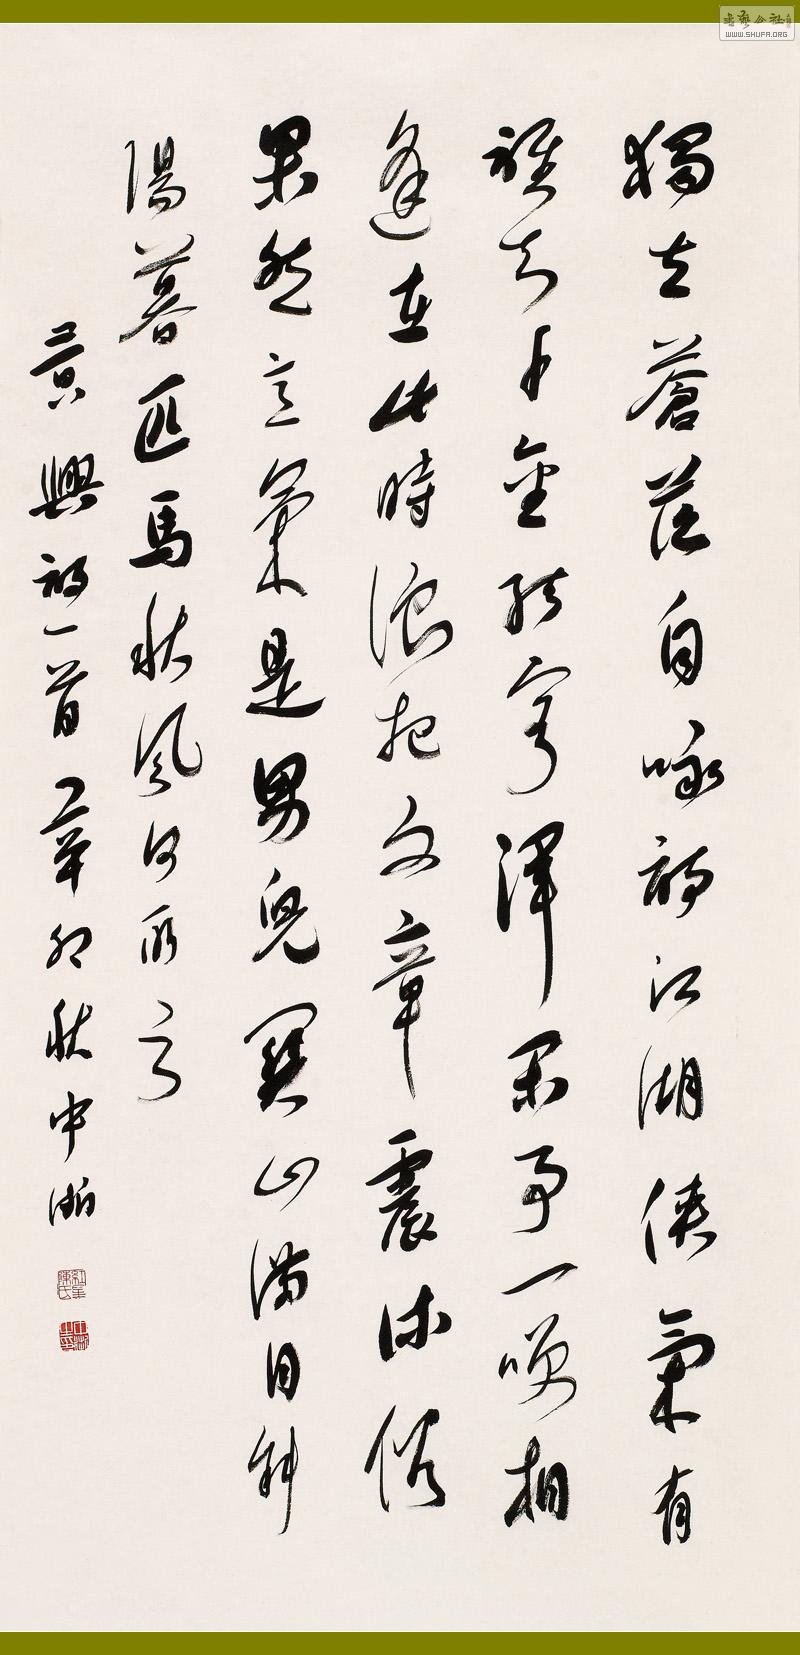 書藝公社
WWW.SHUFA.ORG
獨立蒼茫自咏詩江湖俠氣有
誰知千金結客渾閑事一咲相
逢在此時浪把文章震流俗
果然意氣是男兒關山滿目斜
陽暮匹馬秋風何所之
黃興詩一首辛卯秋中浙